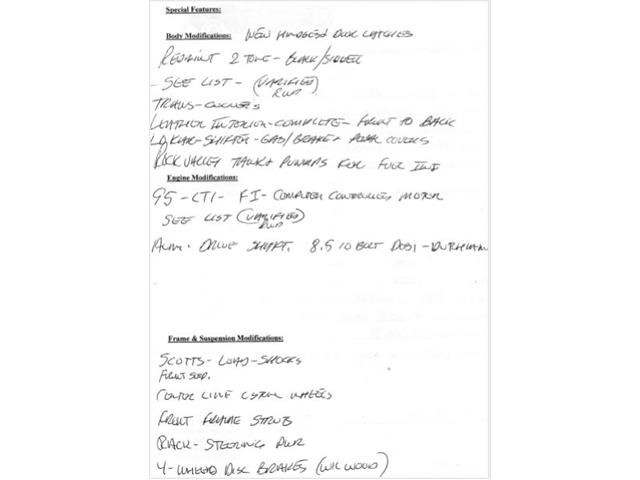 Special Features:
Body Modifications: NEW HINDGES & DOOR LATCHES
REPAINT 2 TONE - BLACK/SILVER
- SEE LIST - (VARIFIED)
RWP
TRANS - COOLERS
LEATHER INTERIOR - COMPLETE - FRONT TO BACK
LOKAR - SHIFTER - GAS/BRAKE & PEDAL COVERS
ROCK VALLEY TANK & PUMPS FOR FUEL INJ
Engine Modifications:
95 - LT1 - FI - COMPUTER CONTROLLED MOTOR
SEE LIST (VARIFIED)
RWP
ALUM. DRIVE SHAFT. 8.5 10 BOLT POSI -
Frame & Suspension Modifications:
SCOTTS - LOAD - SHOCKS
FRONT SUSP.
CENTER LINE WHEELS
FRONT FRAME STRUTS
RACK - STEERING PWR
4 - WHEEL DISC BRAKES (WILWOOD)